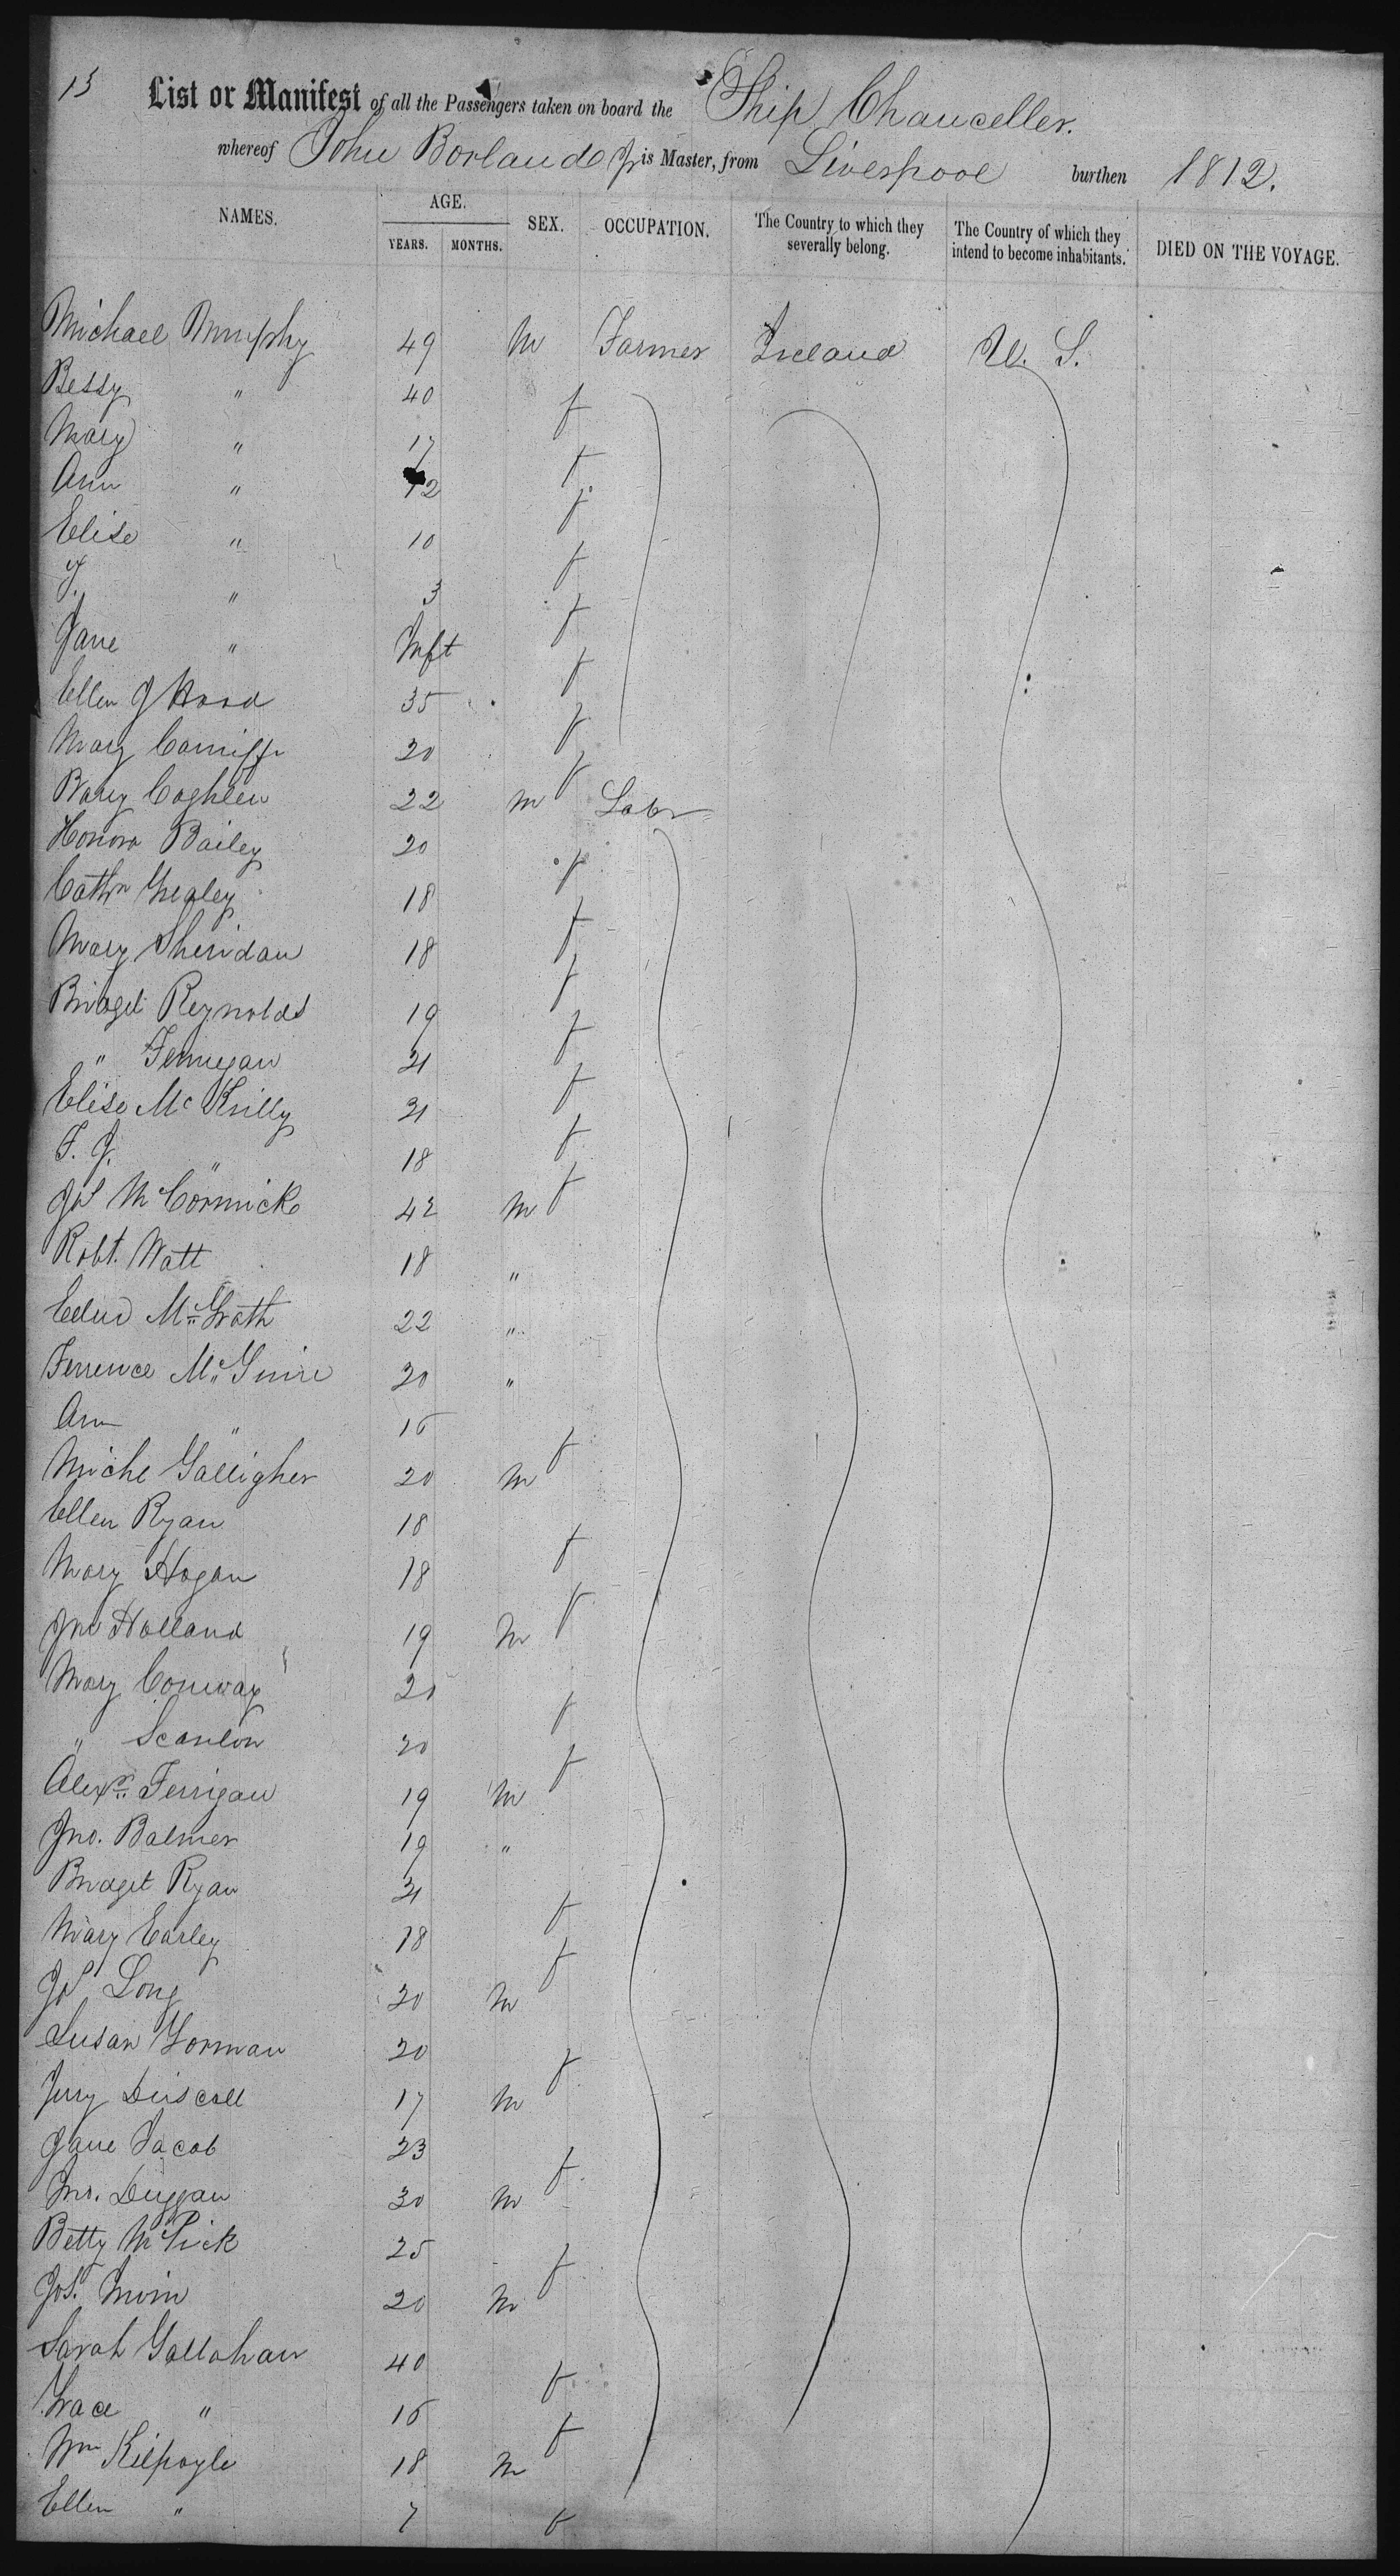 13
List or Manifest of all the Passengers taken on board the Ship Chanceller.
whereof John Borland Jr is Master, from Liverpool burthen 1812.
NAMES. AGE. YEARS. MONTHS. SEX. OCCUPATION. The Country to which they severally belong. The Country of which they intend to become inhabitants. DIED ON THE VOYAGE.
Michael Murphy 49 M Farmer Ireland U. S.
Bessy " 40 f
Mary " 17 f
Ann " 12 f
Elise " 10 f
" 3 f
Jane " Inft f
Ellen 35 f
Mary 20 f
Coghlen 22 m Labr
Honora Bailey 20 f
Cathn Ghealey 18 f
Mary Sheridan 18 f
Bridget Reynolds 19 f
" 21 f
Elise Mc 21 f
F. J. " 18 f
Jos McCormick 42 M
Robt. Watt 18 "
Edwd McGrath 22 "
Terrence McGuire 20 "
Ann " 16 f
Michl Galligher 20 M
Ellen Ryan 18 f
Mary Hogan 18 f
Jno Holland 19 M
Mary Conway 20 f
" Scanlon 20 f
Alexr. Ferrigan 19 M
Jno. Balmer 19 "
Bridget Ryan 21 f
Mary Earley 18 f
Jos Long 30 M
Susan Gorman 20 f
Jerry Driscoll 17 M
Jane Jacob 23 f
Jno. Duggan 30 M
Betty McPick 25 f
Jos. Irvin 20 M
Sarah Gallahan 40 f
Grace " 16 f
Wm Kilpoyle 18 M
Ellen " 7 f